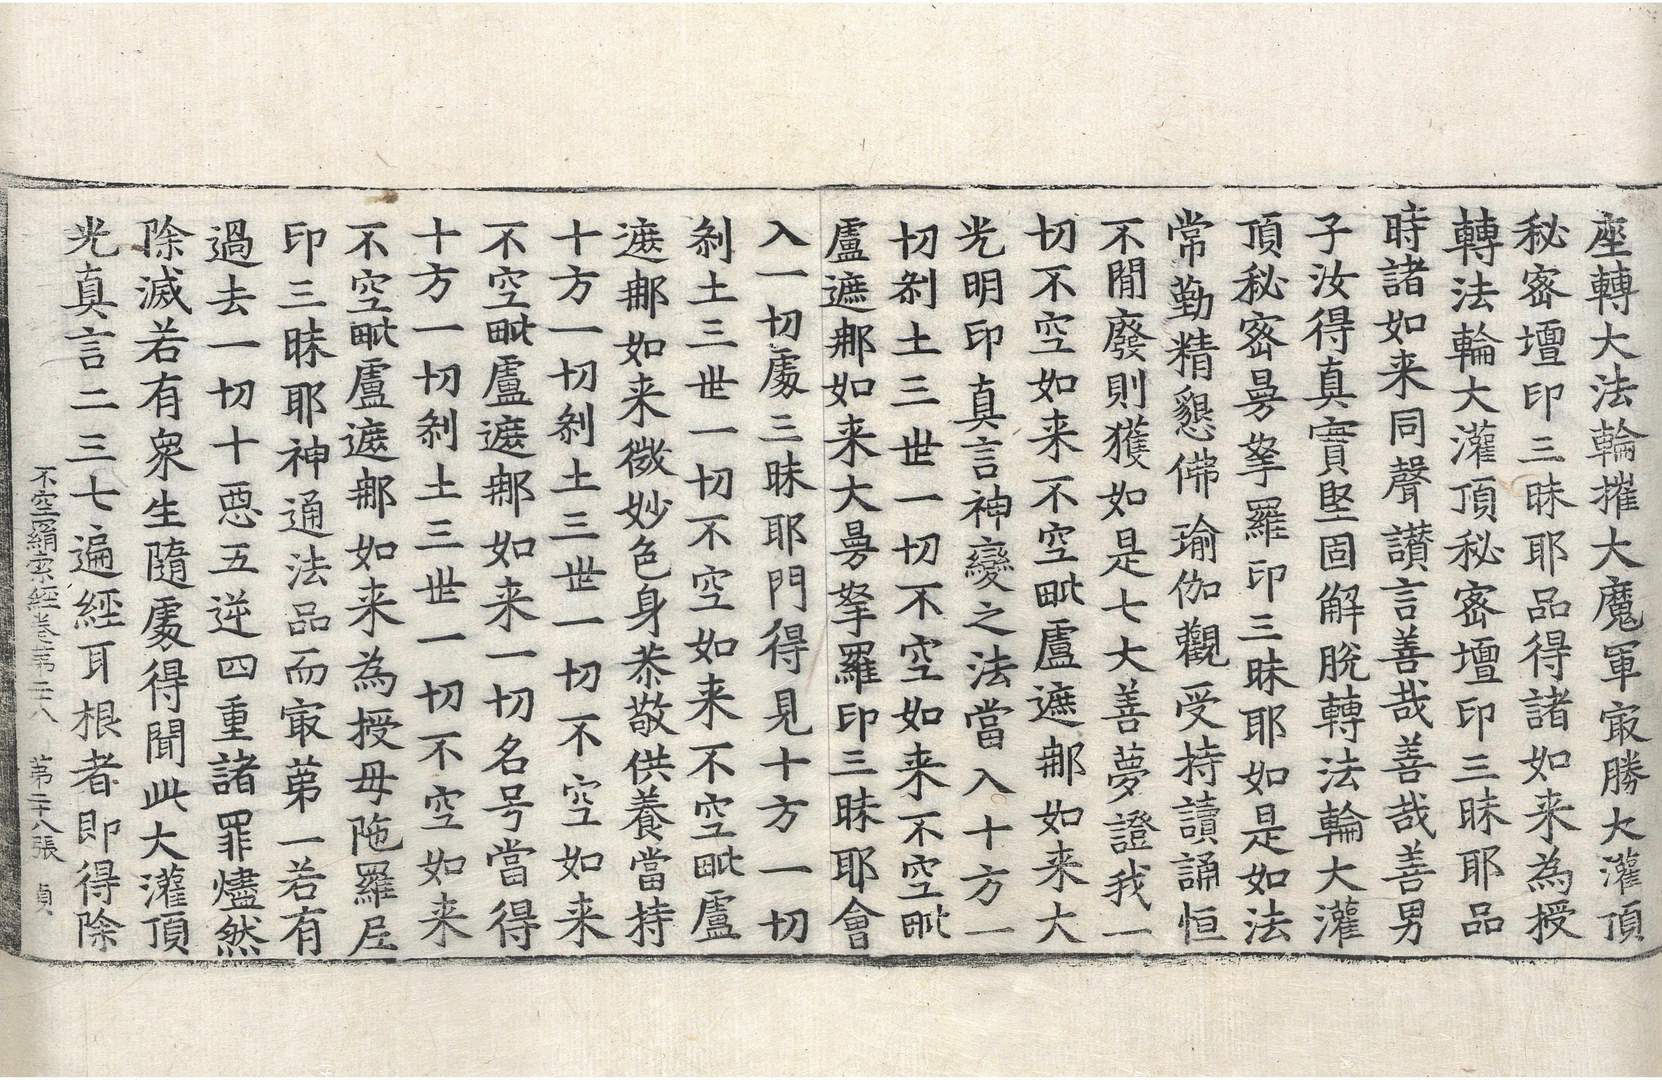 座轉大法輪摧大魔軍㝡勝大灌頂
秘密壇印三昧耶品得諸如来為授
轉法輪大灌頂秘密壇印三昧耶品
時諸如来同聲讃言善哉善哉善男
子汝得真實堅固解脫轉法輪大灌
頂秘密曼拏羅印三昧耶如是如法
常勤精懇俙瑜伽觀受持讀誦恒
不閒廢則獲如是七大善夢證我一
切不空如来不空毗盧遮那如来大
光明印真言神變之法當入十方一
切剎土三世一切不空如来不空毗
盧遮那如来大曼拏羅印三昧耶會
入一切處三昧耶門得見十方一切
剎土三世一切不空如来不空毗盧
遮那如来微妙色身恭敬供養當持
十方一切剎土三世一切不空如来
不空毗盧遮那如来一切名号當得
十方一切剎土三世一切不空如来
不空毗盧遮那如来為授毋陁羅尼
印三昧耶神通法品而㝡第一若有
過去一切十惡五逆四重諸罪燼然
除滅若有衆生隨處得聞此大灌頂
光真言二三七遍經耳根者即得除
不空羂索經卷第二十八　第二十八張　貞